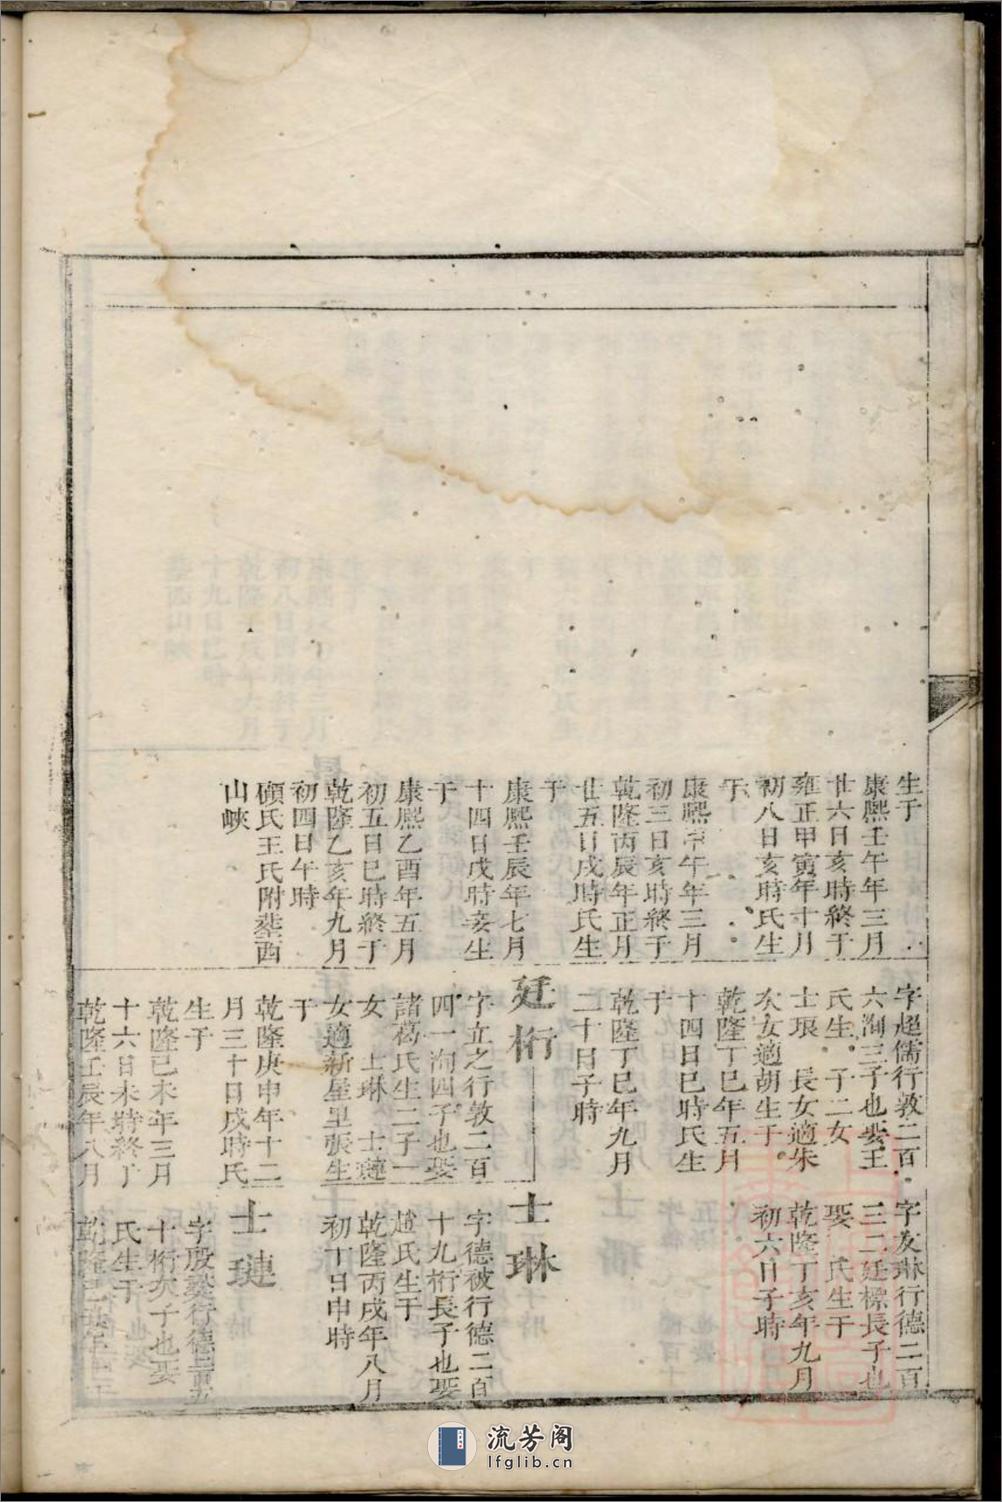 生于
康熙壬午年三月
廿六日亥時終于
雍正甲寅年十月
初八日亥時氏生
于
康熙甲午年三月
初三日亥時終于
乾隆丙辰年正月
廿五日戌時氏生
于
康熙壬辰年七月
十四日戌時妾生
于
康熙乙酉年五月
初五日巳時終于
乾隆乙亥年九月
初四日午時
顧氏王氏附塟西
山峽
字超儒行敦二百
六洵三子也娶王
氏生子二女
士琅 長女適朱
次女適胡生于
乾隆丁巳年五月
十四日巳時氏生
于
乾隆丁巳年九月
二十日子時
廷桁
字立之行敦二百
四一洵四子也娶
諸葛氏生二子一
女 士琳 士璉
女適新屋里張生
于
乾隆庚申年十二
月三十日戌時氏
生于
乾隆己未年三月
十六日未時終于
乾隆壬辰年八月
字友琳行德二百
三二廷檁長子也
娶 氏生于
乾隆丁亥年九月
初六日子時
士琳
字德被行德二百
十九桁長子也娶
趙氏生于
乾隆丙戌年八月
初丁日申時
士璉
字殷 行德二百五
十桁次子也娶
氏生于
乾隆己
流芳阁
lfglib.cn